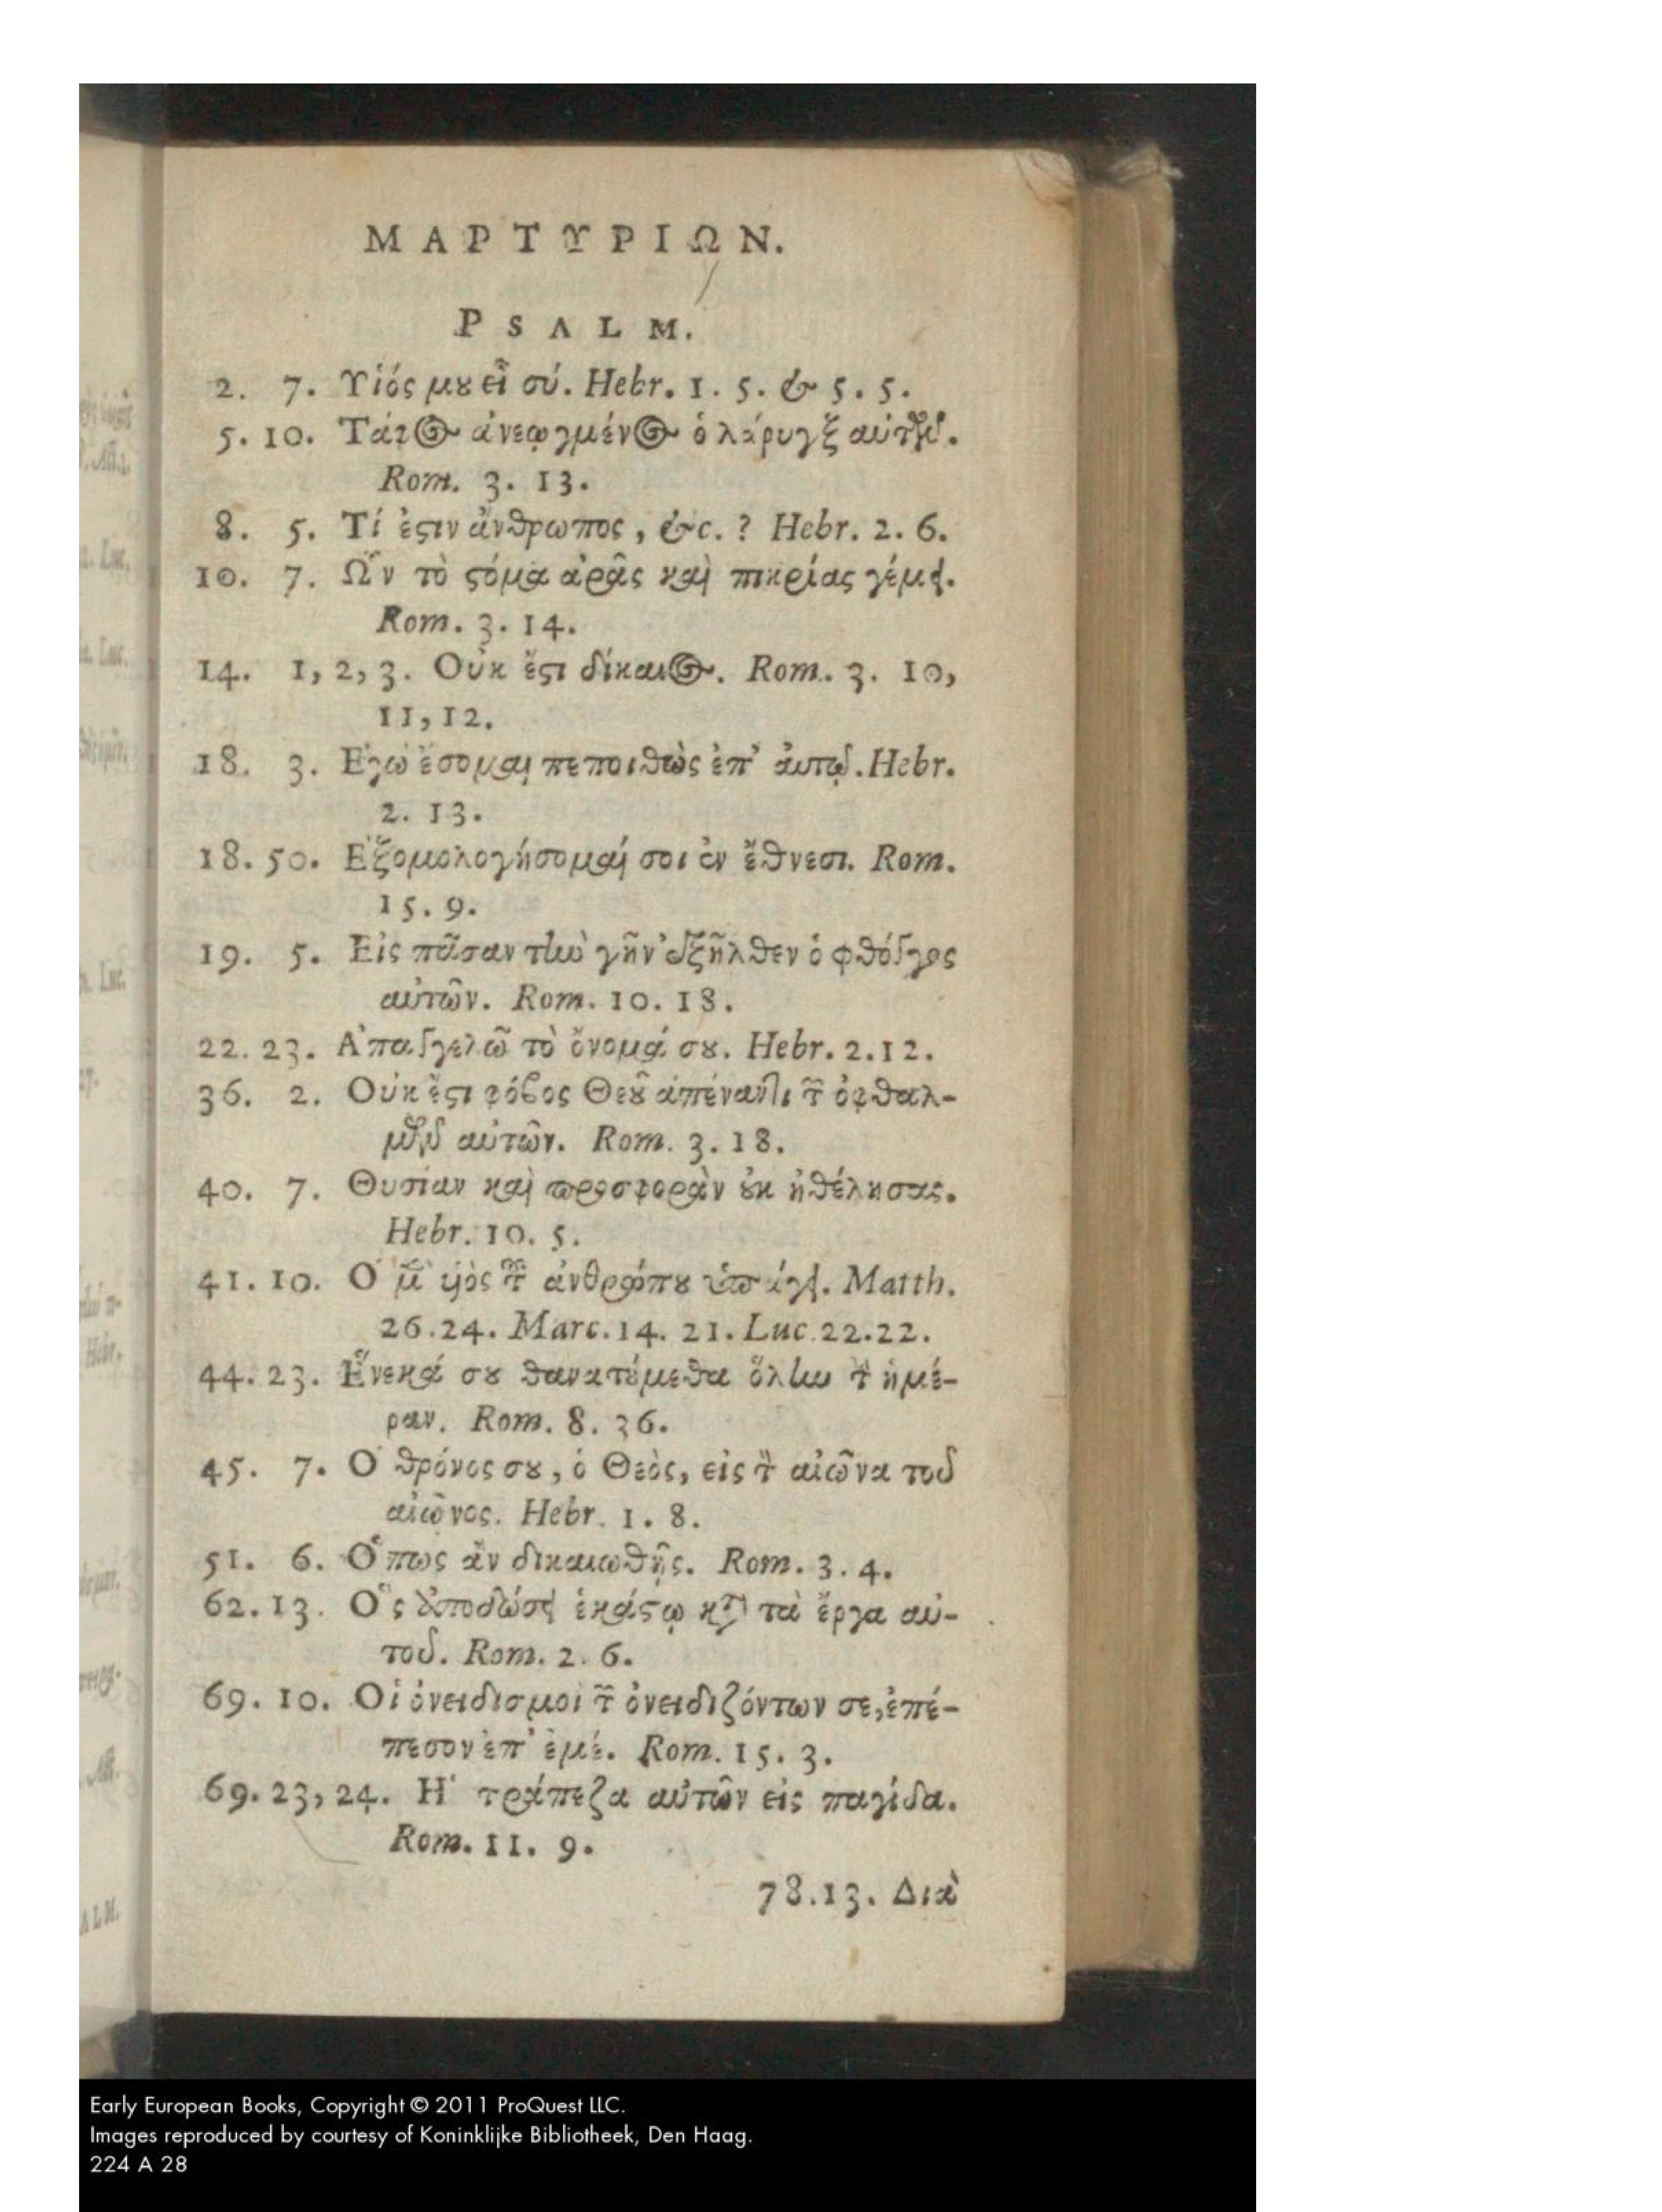 ΜΑΡΤΥΡΙΩΝ.
PSALM.
2. 7. Υἱός μȣ εἶ σύ. Hebr. 1. 5. & 5. 5.
5. 10. Τάφος ἀνεῳγμένος ὁ λάρυγξ αὐτῶν.
Rom. 3. 13.
8. 5. Τί ἐϛιν ἄνθρωπος, &c. ? Hebr. 2. 6.
10. 7. Ὧν τὸ ϛόμα ἀρᾶς καὶ πικρίας γέμει.
Rom. 3. 14.
14. 1, 2, 3. Οὐκ ἔϛι δίκαιος. Rom. 3. 10,
11, 12.
18. 3. Ἐγὼ ἔσομαι πεποιθὼς ἐπ' ἀυτῷ. Hebr.
2. 13.
18. 50. Ἐξομολογήσομαί σοι ἐν ἔθνεσι. Rom.
15. 9.
19. 5. Εἰς πᾶσαν τὴν γῆν ἐξῆλθεν ὁ φθόγγος
αὐτῶν. Rom. 10. 18.
22. 23. Ἀπαγγελῶ τὸ ὄνομά σȣ. Hebr. 2. 12.
36. 2. Οὐκ ἔϛι φόβος Θεȣ͂ ἀπέναντι τῶν ὀφθαλ-
μῶν αὐτῶν. Rom. 3. 18.
40. 7. Θυσίαν καὶ προσφορὰν ȣ̓κ ἠθέλησας.
Hebr. 10. 5.
41. 10. Ὁ μὲν υἱὸς τοῦ ἀνθρώπȣ ὑπάγει. Matth.
26. 24. Marc. 14. 21. Luc. 22. 22.
44. 23. Ἕνεκά σȣ θανατȣ́μεθα ὅλην τὴν ἡμέ-
ραν. Rom. 8. 36.
45. 7. Ὁ θρόνος σȣ, ὁ Θεὸς, εἰς τὸν αἰῶνα τοῦ
αἰῶνος. Hebr. 1. 8.
51. 6. Ὅπως ἂν δικαιωθῇς. Rom. 3. 4.
62. 13. Ὃς ἀποδώσει ἑκάϛῳ κατὰ τὰ ἔργα αὐ-
τοῦ. Rom. 2. 6.
69. 10. Οἱ ὀνειδισμοὶ τῶν ὀνειδιζόντων σε, ἐπέ-
πεσον ἐπ' ἐμέ. Rom. 15. 3.
69. 23, 24. Ἡ τράπεζα αὐτῶν εἰς παγίδα.
Rom. 11. 9.
78. 13. Διὰ
Early European Books, Copyright © 2011 ProQuest LLC.
Images reproduced by courtesy of Koninklijke Bibliotheek, Den Haag.
224 A 28